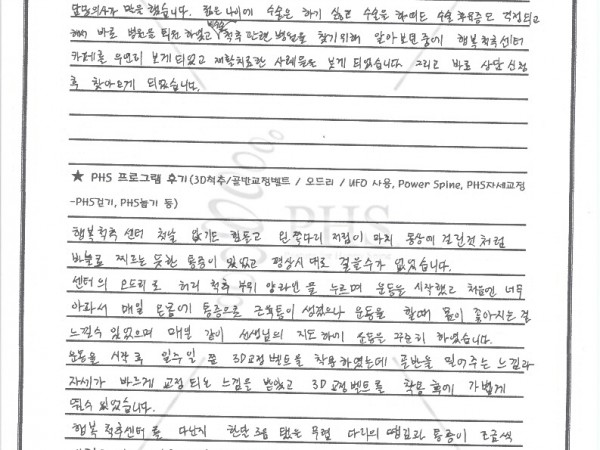 담당의사가 말을 했습니다. 젊은 나이에 수술은 하기 싫고 수술을 하여도 수술 후유증도 걱정되고
해서 바로 병원을 퇴원 하였고 척추 관련 병원을 찾기 위해 알아보면 중에 행복척추센터
카페를 우연히 보게되었고 재활치료한 사례들을 보게 되었습니다. 그리고 바로 상담 신청
후 찾아오게 되었습니다.
★ PHS 프로그램 후기(3D척추/골반교정벨트 / 오드리 / UFO 사용, Power Spine, PHS자세교정
-PHS걷기, PHS눕기 등)
PHS
행복척추 센터 첫날 앉기도 힘들고 왼쪽다리 저림이 마치 동상에 걸린것 처럼
바늘로 찌르는 듯한 통증이 있었고 평상시 대로 걸을수가 없었습니다.
센터의 오드리로 허리 척추 부위 양라인을 누르며 운동을 시작했고 처음엔 너무
아파서 매일 온몸에 통증으로 근육통이 생겼으나 운동을 할때 몸이 좋아지는 걸
느낄수 있었으며 매일 같이 선생님의 지도 하에 운동을 꾸준히 하였습니다.
운동을 시작 후 일주일 쯤 3D교정벨트를 착용하였는데 골반을 밀어주는 느낌과
자세가 바르게 교정 되는 느낌을 받았고 3D교정벨트를 착용 후에 가볍게
뛸수 있었습니다.
행복 척추센터를 다닌지 한달 3주 됐는 무렵 다리의 땡김과 통증이 조금씩